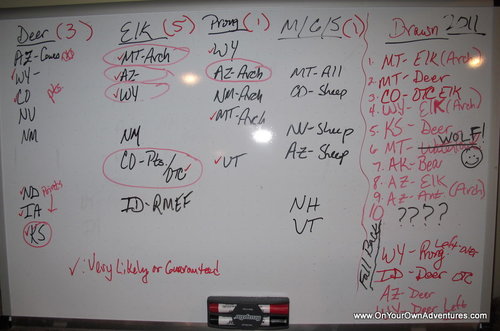 Deer (3)
AZ-Coues
WY-
CO pts.
NV
NM
ND Points
IA
KS
Elk (5)
MT-Arch
AZ-
WY-
NM
CO-Pts./
OTC
ID-RMEF
Prong (1)
WY
AZ-Arch
NM-Arch
MT-Arch
UT
M/G/S (1)
MT-All
CO-Sheep
NV-Sheep
AZ-Sheep
NH
VT
√: Very Likely or Guaranteed
Brawn 2011
1. MT-Elk (Arch)
2. MT-Deer
3. CO-OTC Elk
4. WY-Elk (Arch)
5. KS-Deer
6. MT WOLF!
7. AK-Bear
8. AZ-Elk
9. AZ-Ant (Arch)
10 ????
Fall Back
WY-Prong Left-over
ID-Deer OTC
AZ-Deer
WY Deer Left
www.OnYourOwnAdventures.com